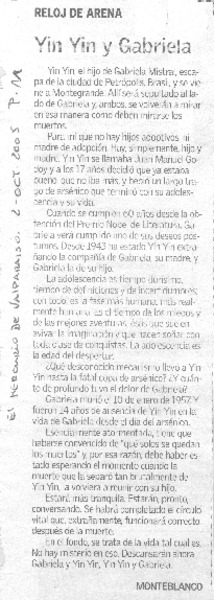 RELOJ DE ARENA
Yin Yin y Gabriela
Yin Yin, el hijo de Gabriela Mistral, esca-
pa de la ciudad de Petrópolis, Brasil, y se vie-
ne a Montegrande. Allí será sepultado al la-
do de Gabriela y, ambos, se volverán a mirar
en esa manera como deben mirarse los
muertos.
Para mí que no hay hijos adoptivos ni
madre de adopción. Hay, simplemente, hijo
y madre. Yin Yin se llamaba Juan Manuel Go-
doy y a los 17 años decidió que ya estaba
bueno que no iba más, y bebió un largo tra-
go de arsénico que terminó con su adoles-
cencia y su vida.
Cuando se cumplen 60 años desde la ob-
tención del Premio Nobel de Literatura, Ga-
briela verá cumplido uno de sus deseos pós-
tumos. Desde 1943 ha estado Yin Yin extra-
ñando la compañía de Gabriela, su madre, y
Gabriela la de su hijo.
La adolescencia es tiempo durísimo,
tiempo de definiciones y de incertidumbres,
con todo, es la fase más humana, más real-
mente humana, es el tiempo de los miedos y
de las mejores aventuras, ésas que suelen
avivar la imaginación y que hacen soñar con to-
da clase de conquistas. La adolescencia es
la edad del despertar.
¿Qué desconocido mecanismo llevó a Yin
Yin hasta la fatal copa de arsénico? ¿Y cuán-
to de profundo tuvo el dolor de Gabriela?
Gabriela murió el 10 de enero de 1957
y fueron 14 años de ausencia de Yin Yin en la
vida de Gabriela desde el día del arsénico.
haberse convencido de "qué solos se quedan
los muertos" y, por esa razón, debe haber
estado esperando el momento cuando la
muerte que la separó tan brutalmente de
Yin Yin, la volviera a reunir con su hijo.
Estará más tranquila. Estarán, pronto,
conversando. Se habrá completado el círculo
vital que, extrañamente, funcionará correcto
después de la muerte.
En el fondo, se trata de la vida tal cual es.
No hay misterio en eso. Descansarán ahora
Gabriela y Yin Yin, Yin Yin y Gabriela.
MONTEBLANCO
EL MERCURIO DE VALPARAISO. 2-OCT 2005 P. 11